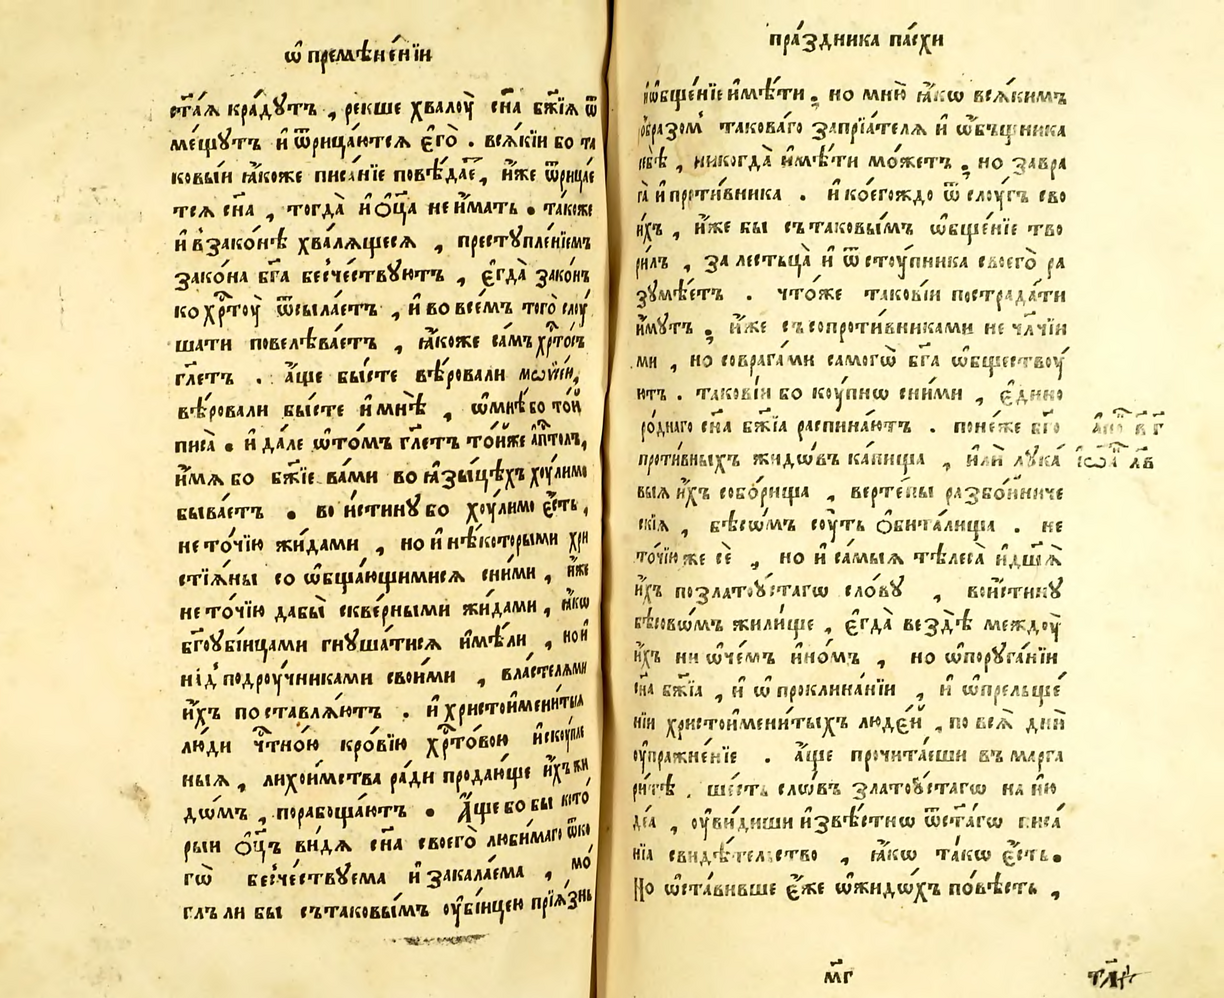 ѡ҆ премѣне́нїи
ст҃а́ѧ краду́тъ , рекше хвалоу̀ сн҃а бж҃їѧ ѿ
ме́щутъ и҆ ѿрица́ютсѧ є҆го̀ . всѧ́кїи бо та
ковы́и ꙗ҆́коже писа́нїе повѣ́даетъ , и҆́же ѿрица́е
тсѧ сн҃а , тогда̀ и҆ ѻ҆ц҃а не и҆́мать . та́коже
и҆ в̾зако́нѣ хва́лѧщесѧ , преступле́нїемъ
зако́на бг҃а бесче́ствꙋютъ , є҆гда̀ зако́нъ
ко хр҃тоу̀ ѿсыла́етъ , и҆ во все́мъ того̀ слоу́
шати повелѣва́етъ , ꙗ҆́коже са́мъ хр҃то́съ
гл҃етъ . а҆́ще бы́сте вѣ́ровали мѡѷсе́и ,
вѣ́ровали бы́сте и҆ мнѣ̀ , ѡ҆ мнѣ́ бо то́и
писа̀ . и҆ да́ле ѡ҆ то́мъ гл҃етъ то́йже а҆пт҃олъ ,
и҆́мѧ бо бж҃їе ва́ми во ꙗ҆зы́цѣхъ хоу́лимо
быва́етъ . во и҆́стинꙋ бо хоу́лимо є҆́сть ,
не то́чїю жи́дами , но и҆ нѣ́которыми хри
стїѧ́ны со ѡ҆бща́ющимисѧ сни́ми , и҆́же
не то́чїю дабы̀ скве́рными жи́дами , ꙗ҆́кѡ
бг҃оубі́ицами гнуша́тисѧ и҆мѣ́ли , но и҆
ні́д̾ подроу́чниками свои́ми , вла́стелѧми
и҆́хъ поставлѧ́ютъ . и҆ христои҆мени́тыѧ
лю́ди ч҃тно́ю кро́вїю хр҃то́вою и҆скоу́пле
ныѧ , лихои́мства ра́ди продаю́ще и҆́хъ жи
дѡ́мъ , порабоща́ютъ . А҆́ще бо бы кото́
рыи ѻ҆ц҃ъ ви́дѧ сн҃а своего̀ люби́маго ѿ ко
гѡ̀ бесче́ствꙋема и҆ закала́ема , мо́
глъ ли бы съ таковы́мъ оу҆бі́ицею прїѧ́знь
пра́здника па́схи
и҆ ѡ҆бще́нїе и҆мѣ́ти ; но мню̀ ꙗ҆́кѡ всѧ́кимъ
о҆́бразомъ такова́го запрїа́телѧ и҆ ѡ҆бъщника
себѣ̀ , никогда̀ и҆мѣ́ти мо́жетъ ; но за вра
га̀ и҆ проти́вника . и҆ кое́гождо ѿ слоу́гъ сво
и҆́хъ , и҆́же бы съ таковы́мъ ѡ҆бще́нїе тво
ри́лъ , за лестьца̀ и҆ ѿстоу́пника своего̀ ра
зумѣ́етъ . что́же такові́и пострада́ти
и҆́мутъ ; и҆́же съ сопроти́вниками не чл҃чїи
ми , но со врага́ми самогѡ̀ бг҃а ѡ҆бществоу́
итъ . таковї́и бо коу́пнѡ сни́ми , є҆ди́но
ро́днаго сн҃а бж҃їа распина́ютъ . поне́же бг҃о
проти́вныхъ жидо́въ ка́пища , и҆лѝ лука́
выѧ и҆́хъ собо́рища , верте́пы разбо́йниче
скїѧ , бѣсѡ́мъ соу́ть ѻ҆бита́лища . не
то́чїю же сѐ , но и҆ са́мыѧ тѣлеса̀ и҆ дш҃ѧ̀
и҆́хъ по злато́устагѡ сло́ву , вои҆́стину
бѣсовѡ́мъ жили́ще , є҆гда̀ вездѣ̀ междоу̀
и҆́хъ ни ѡ҆ че́мъ и҆но́мъ , но ѡ҆ пoруга́нїи
сн҃а бж҃їа , и҆ ѡ҆ проклина́нїи , и҆ ѡ҆ прельще́
нїи христои҆мени́тыхъ люде́й , по всѧ̀ дни̑
оу҆пражне́нїе . а҆́ще прочита́еши въ марга
ри́тѣ . ше́сть сло́въ злато́устагѡ на и҆ю
деа , оу҆ви́диши и҆звѣ́стнѡ ѿ ст҃а́гѡ писа́
нїа свидѣ́тельство , ꙗ҆́кѡ та́кѡ є҆́сть .
Но ѡ҆ста́вивше є҆́же ѡ҆ жидѡ́хъ по́вѣсть ,
м҃г